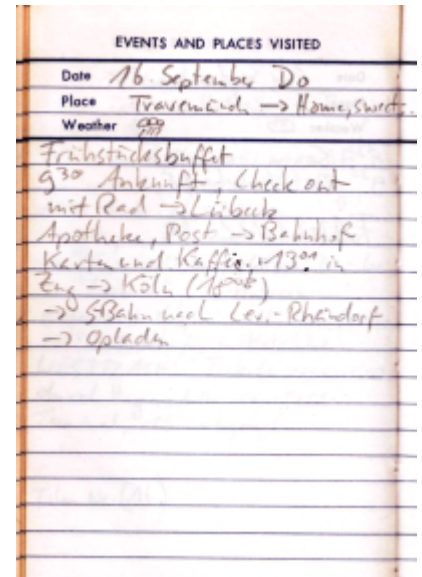 EVENTS AND PLACES VISITED
Date 16. September Do
Place Travemünde → Home, sweet.
Weather
Frühstücksbuffet
9³⁰ Ankunft, Check out
mit Rad → Lübeck
Apotheke, Post → Bahnhof
Karten und Kaffee, 13⁰¹ in
Zug → Köln (18⁰⁶)
→ S-Bahn nach Lev.-Rheindorf
→ Opladen